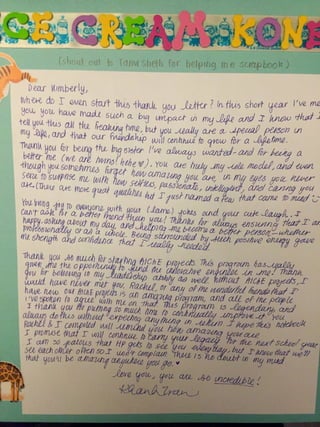 CE CREAM KONE
(shout out to Tanvi Sheth for helping me scrapbook)
Dear Kimberly,
Where do I even start this thank you letter? In this short year I've met
you, you have made such a big impact in my life and I know that I
tell you this all the freaking time, but you really are a special person in
my life, and that our friendship will continue to grow for a lifetime.
Thank you for being the big sister I've always wanted and for being a
better me (we are twins! hehe). You are truly my role model, and even
though you sometimes forget how amazing you are, in my eyes you never
cease to surprise me with how selfless, passionate, intelligent, and caring you
are. (There are more great qualities but I just named a few that came to mind
You bring joy to everyone with your (lame) jokes and your cute laugh, I
can't ask for a better friend than you! Thanks for always ensuring that I am
happy, asking about my day, and helping me become a better person - whether
professionally or as a whole. Being surrounded by such positive energy gave
me strength and confidence that I really needed.
Thank you so much for starting AIChE Projects. This program has really
given me the opportunity to find the engineer in me! Thank
you for believing in my leadership ability as well. Without AIChE Projects, I
would have never met you, Rachel, or any of the wonderful friends that I
have now. Our AIChE program is an amazing program, and all of the people
I've spoken to agree with me on that. This program is legendary, and
I thank you for putting so much time to continually improve it. You
always do this without expecting anything in return. I hope this notebook
Rachel & I compiled will remind you how amazing you are.
I promise that I will continue to carry your legacy for the next school year.
I am so jealous that HP gets to see you everyday, but I know that we'll
see each other often so I won't complain. There is no doubt in my mind
that you'll be amazing anywhere you go ♥
love you, you are so incredible!
Khanh Tran